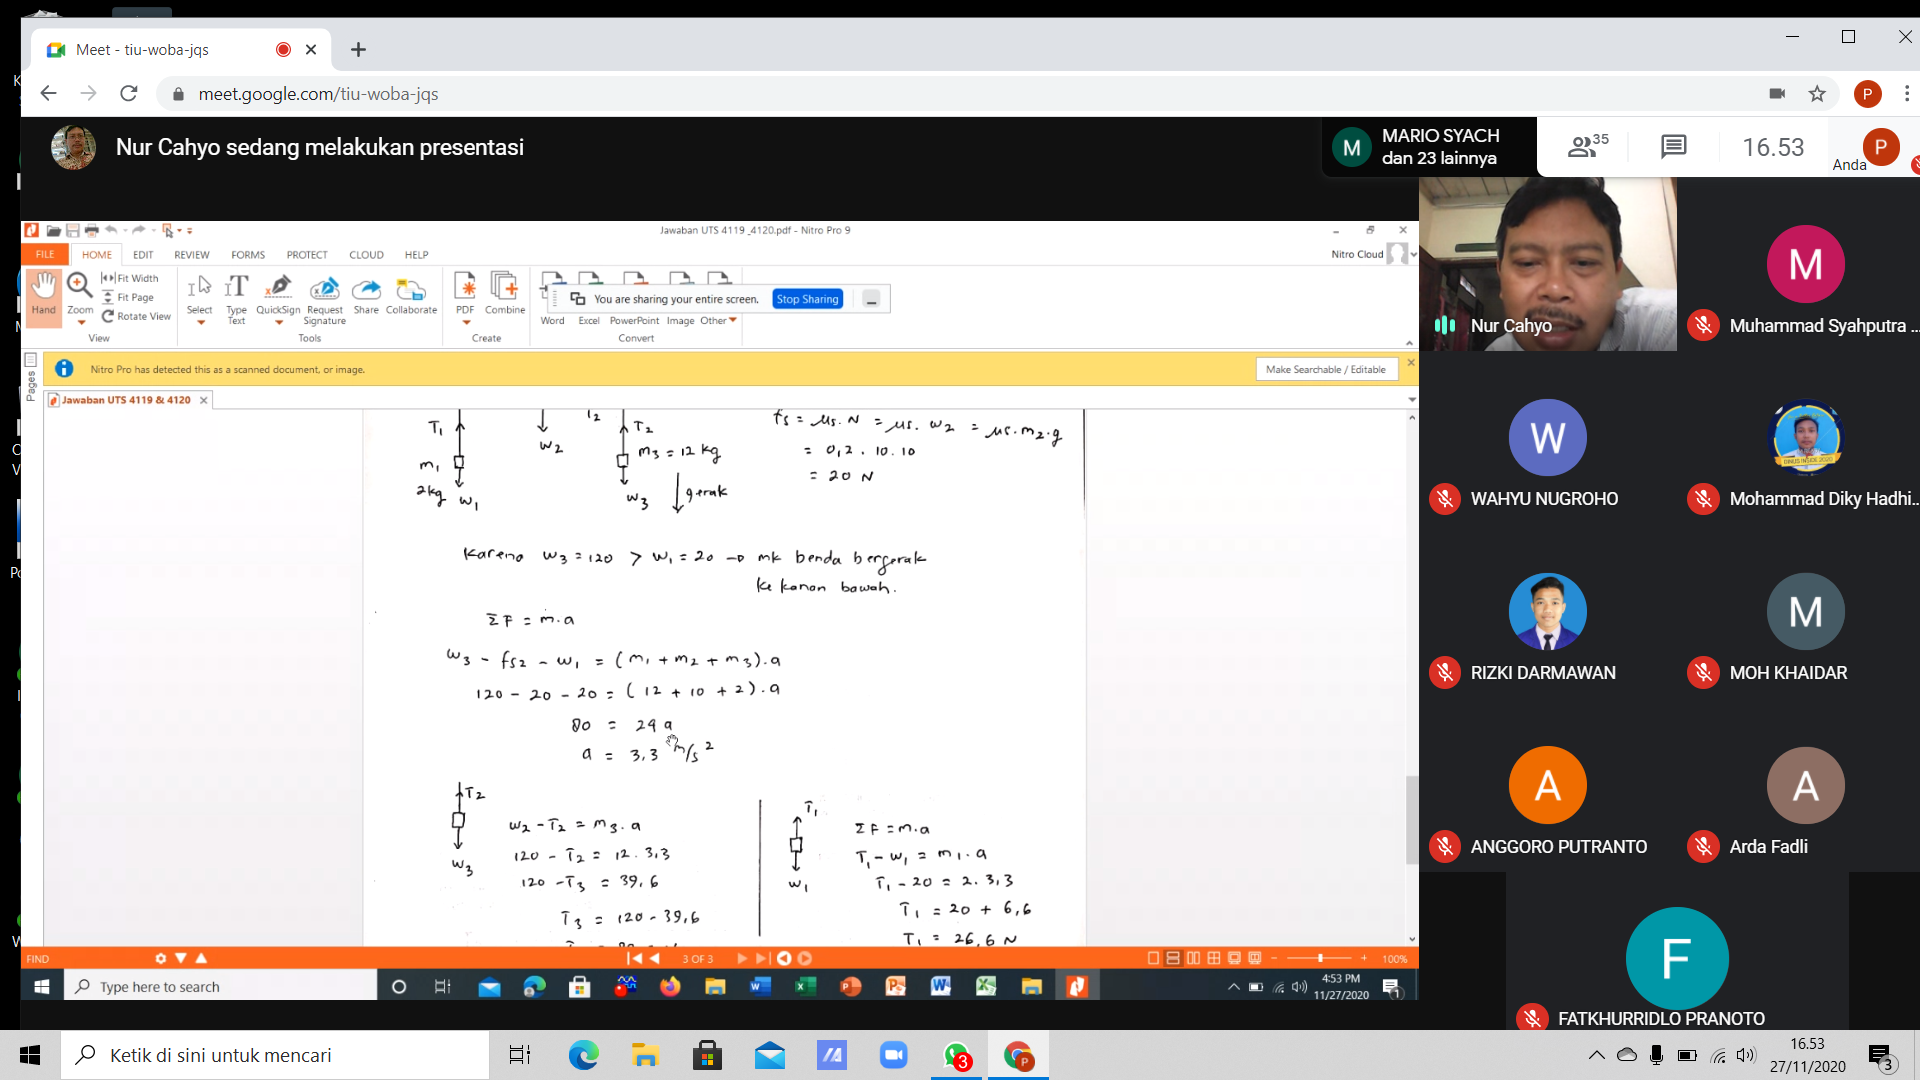 Meet - tiu-woba-jqs
meet.google.com/tiu-woba-jqs
P
Nur Cahyo sedang melakukan presentasi
M
MARIO SYACH
dan 23 lainnya
35
16.53
Anda
P
Jawaban UTS 4119 _4120.pdf - Nitro Pro 9
FILE HOME EDIT REVIEW FORMS PROTECT CLOUD HELP
Nitro Cloud
Hand
Zoom
Fit Width
Fit Page
Rotate View
View
Select
Type Text
QuickSign
Request Signature
Share
Collaborate
Tools
PDF
Combine
Create
You are sharing your entire screen.
Stop Sharing
Word Excel PowerPoint Image Other
Convert
Pages
Nitro Pro has detected this as a scanned document, or image.
Make Searchable / Editable
Jawaban UTS 4119 & 4120
T1
m1
2kg w1
w2
T2
T2
m3 = 12 kg
w3
gerak
fs = μs. N = μs. w2 = μs. m2.g
= 0,2 . 10.10
= 20 N
Karena w3 = 120 > w1 = 20 → mk benda bergerak
ke kanan bawah.
ΣF = m.a
w3 - fs2 - w1 = (m1 + m2 + m3).a
120 - 20 - 20 = (12 + 10 + 2).a
80 = 24 a
a = 3,3 m/s2
T2
w3
w2 - T2 = m3.a
120 - T2 = 12. 3,3
120 - T3 = 39,6
T3 = 120 - 39,6
T1
w1
ΣF = m.a
T1 - w1 = m1.a
T1 - 20 = 2. 3,3
T1 = 20 + 6,6
T1 = 26,6 N
FIND
3 OF 3
100%
Type here to search
4:53 PM
11/27/2020
1
Nur Cahyo
M
Muhammad Syahputra ...
W
WAHYU NUGROHO
Mohammad Diky Hadhi...
RIZKI DARMAWAN
M
MOH KHAIDAR
A
ANGGORO PUTRANTO
A
Arda Fadli
F
FATKHURRIDLO PRANOTO
Ketik di sini untuk mencari
3
P
16.53
27/11/2020
3